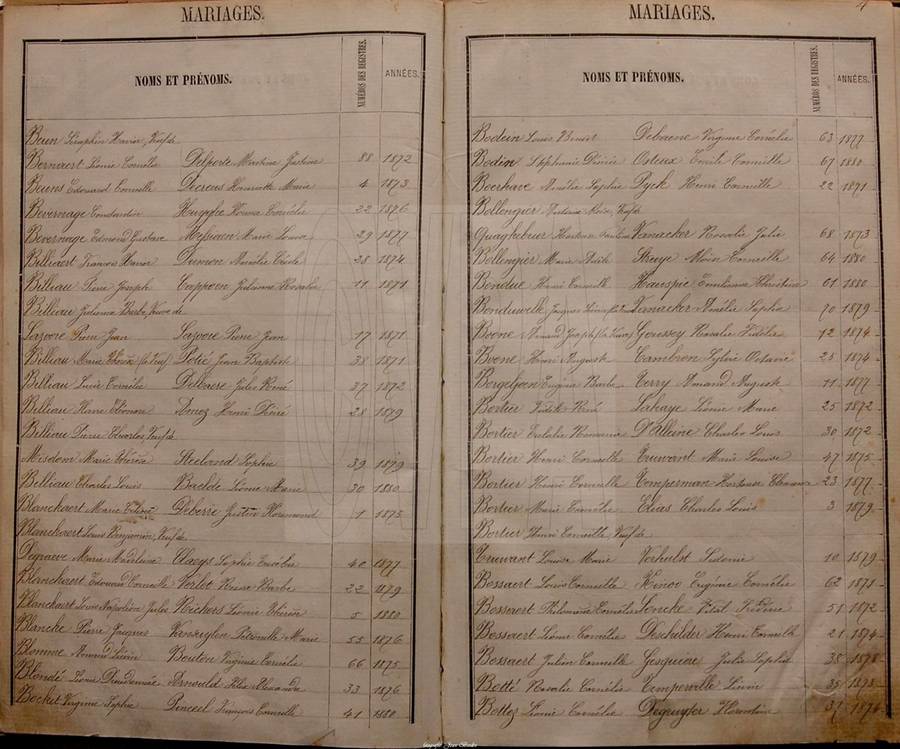 MARIAGES.
NOMS ET PRÉNOMS. NUMÉROS DES REGISTRES ANNÉES.
Beun Séraphin Xavier, Veuf de
Bernaert Léonie Cornélie Delporte Martine Justine 88 1872
Beuns Edouard Corneille Decreus Henriette Marie 4 1873
Bevernage Constantin Huyghe Cornélie 22 1876
Bevernage Edmond Gustave Marie Louise 29 1877
Billiaert François Dumon Amélie Cécile 28 1874
Billiau Pierre Joseph Cappoen Julienne Rosalie 11 1871
Billiau Julienne Barbe, Veuve de
Lazoore Pierre Jean Lazoore Pierre Jean 17 1871
Billiau Marie Thérèse Potié Jean Baptiste 38 1871
Billiau Lucie Cornélie Debaere Jules René 37 1872
Billiau Henri Désiré 28 1879
Billiau Pierre Charles, Veuf de
Misdom Marie Thérèse Steeland Sophie 39 1879
Billiau Charles Louis Baelde Léonie Marie 30 1880
Blanckaert Marie Deberre Justin Florimond 1 1875
Blanckaert Louis Benjamin, Veuf de
Degraeve Marie Madeleine Claeys Sophie Eusébie 40 1877
Blanckaert Edouard Corneille Verbé Reine Barbe 22 1879
Blanckaert Louis Napoléon Jules Rickers Léonie Thérèse 5 1880
Blancke Pierre Jacques Vanzeylen Pétronille Marie 55 1876
Blomme Amand Liévin Bouton Virginie Cornélie 66 1875
Blondé Louis Dieudonné Arnould Alexandre 33 1876
Bochet Virginie Sophie Pinceel François Corneille 41 1880
MARIAGES. 4
NOMS ET PRÉNOMS. NUMÉROS DES REGISTRES ANNÉES.
Bodein Louis Benoit Debaene Virginie Cornélie 63 1877
Bodein Stéphanie Désirée Osteux Emile Corneille 67 1880
Boerhave Amélie Sophie Dyck Henri Corneille 22 1871
Bollengier Aloïse, Veuf de
Quaghebeur Vanacker Rosalie Julie 68 1873
Bollengier Marie Struye Aloïse Corneille 64 1880
Bondue Henri Corneille Haespie Emilienne Christine 61 1880
Bonduwelle Jacques Vanacker Amélie Sophie 70 1879
Boone Amand Joseph Goussey Rosalie Fidélie 12 1874
Boone Henri Auguste Cambron Sylvie Octavie 25 1874
Borgeljoen Eugénie Barbe Terry Amand Auguste 11 1877
Bortier Fidèle René Lahaye Léonie Marie 25 1872
Bortier Eulalie Romanie D'Alleine Charles Louis 30 1872
Bortier Henri Corneille Truwant Marie Louise 47 1875
Bortier Henri Corneille Temperman Hortense 23 1877
Bortier Marie Cornélie Elias Charles Louis 3 1879
Bortier Henri Corneille, Veuf de
Truwant Louise Marie Verhulst Sidonie 10 1879
Bossaert Louis Corneille Eugénie Cornélie 62 1871
Bossaert Philomène Cornélie Soncke Vital Fidèle 51 1872
Bossaert Léonie Cornélie Deschilder Henri Corneille 21 1874
Bossaert Julien Corneille Gesquiere Julie Sophie 38 1878
Botté Rosalie Cornélie Temperville Liévin 35 1878
Bottez Léonie Cornélie Degruyter Florentin 37 1876